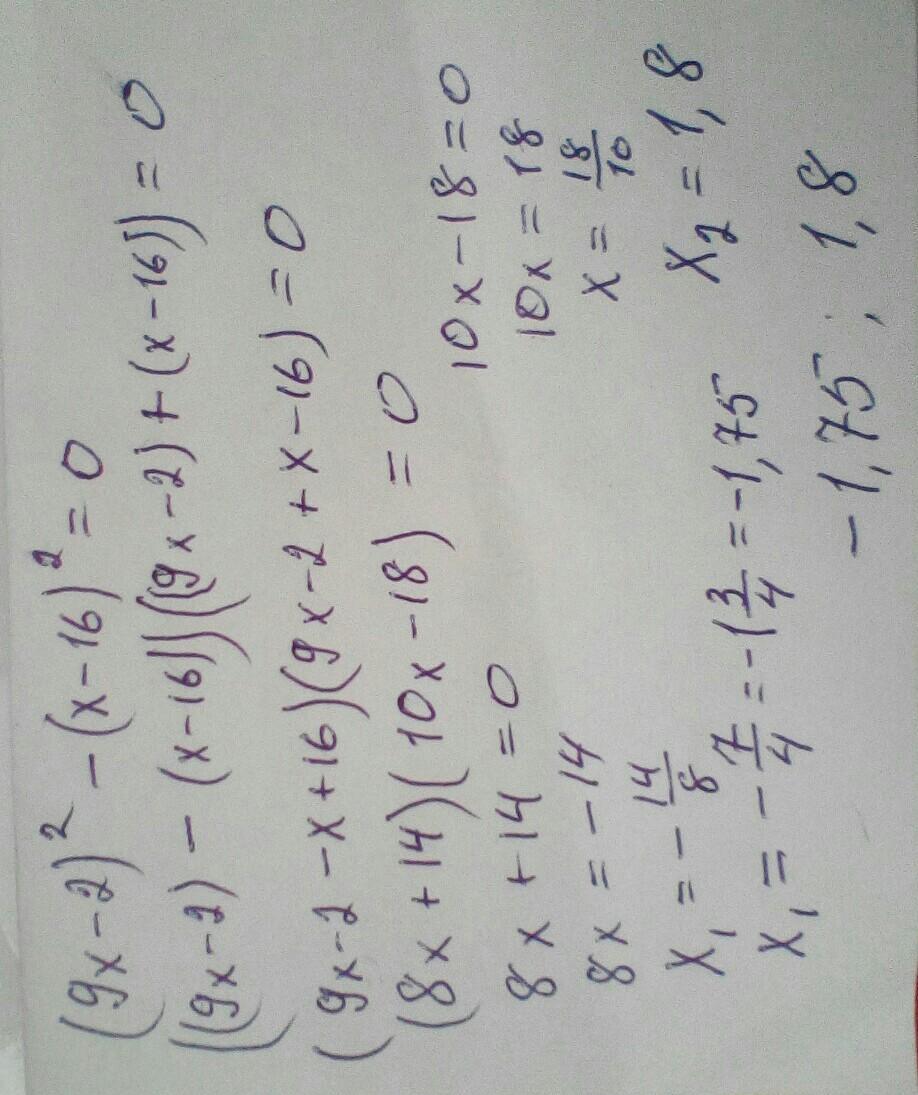 (9x-2)² - (x-16)² = 0
((9x-2) - (x-16))((9x-2)+(x-16)) = 0
(9x-2-x+16)(9x-2+x-16)=0
(8x+14)(10x-18) = 0
8x+14=0 10x-18=0
8x = -14 10x = 18
x₁ = -14/8 x = 18/10
x₁ = -7/4 = -1 3/4 = -1,75 x₂ = 1,8
-1,75; 1,8